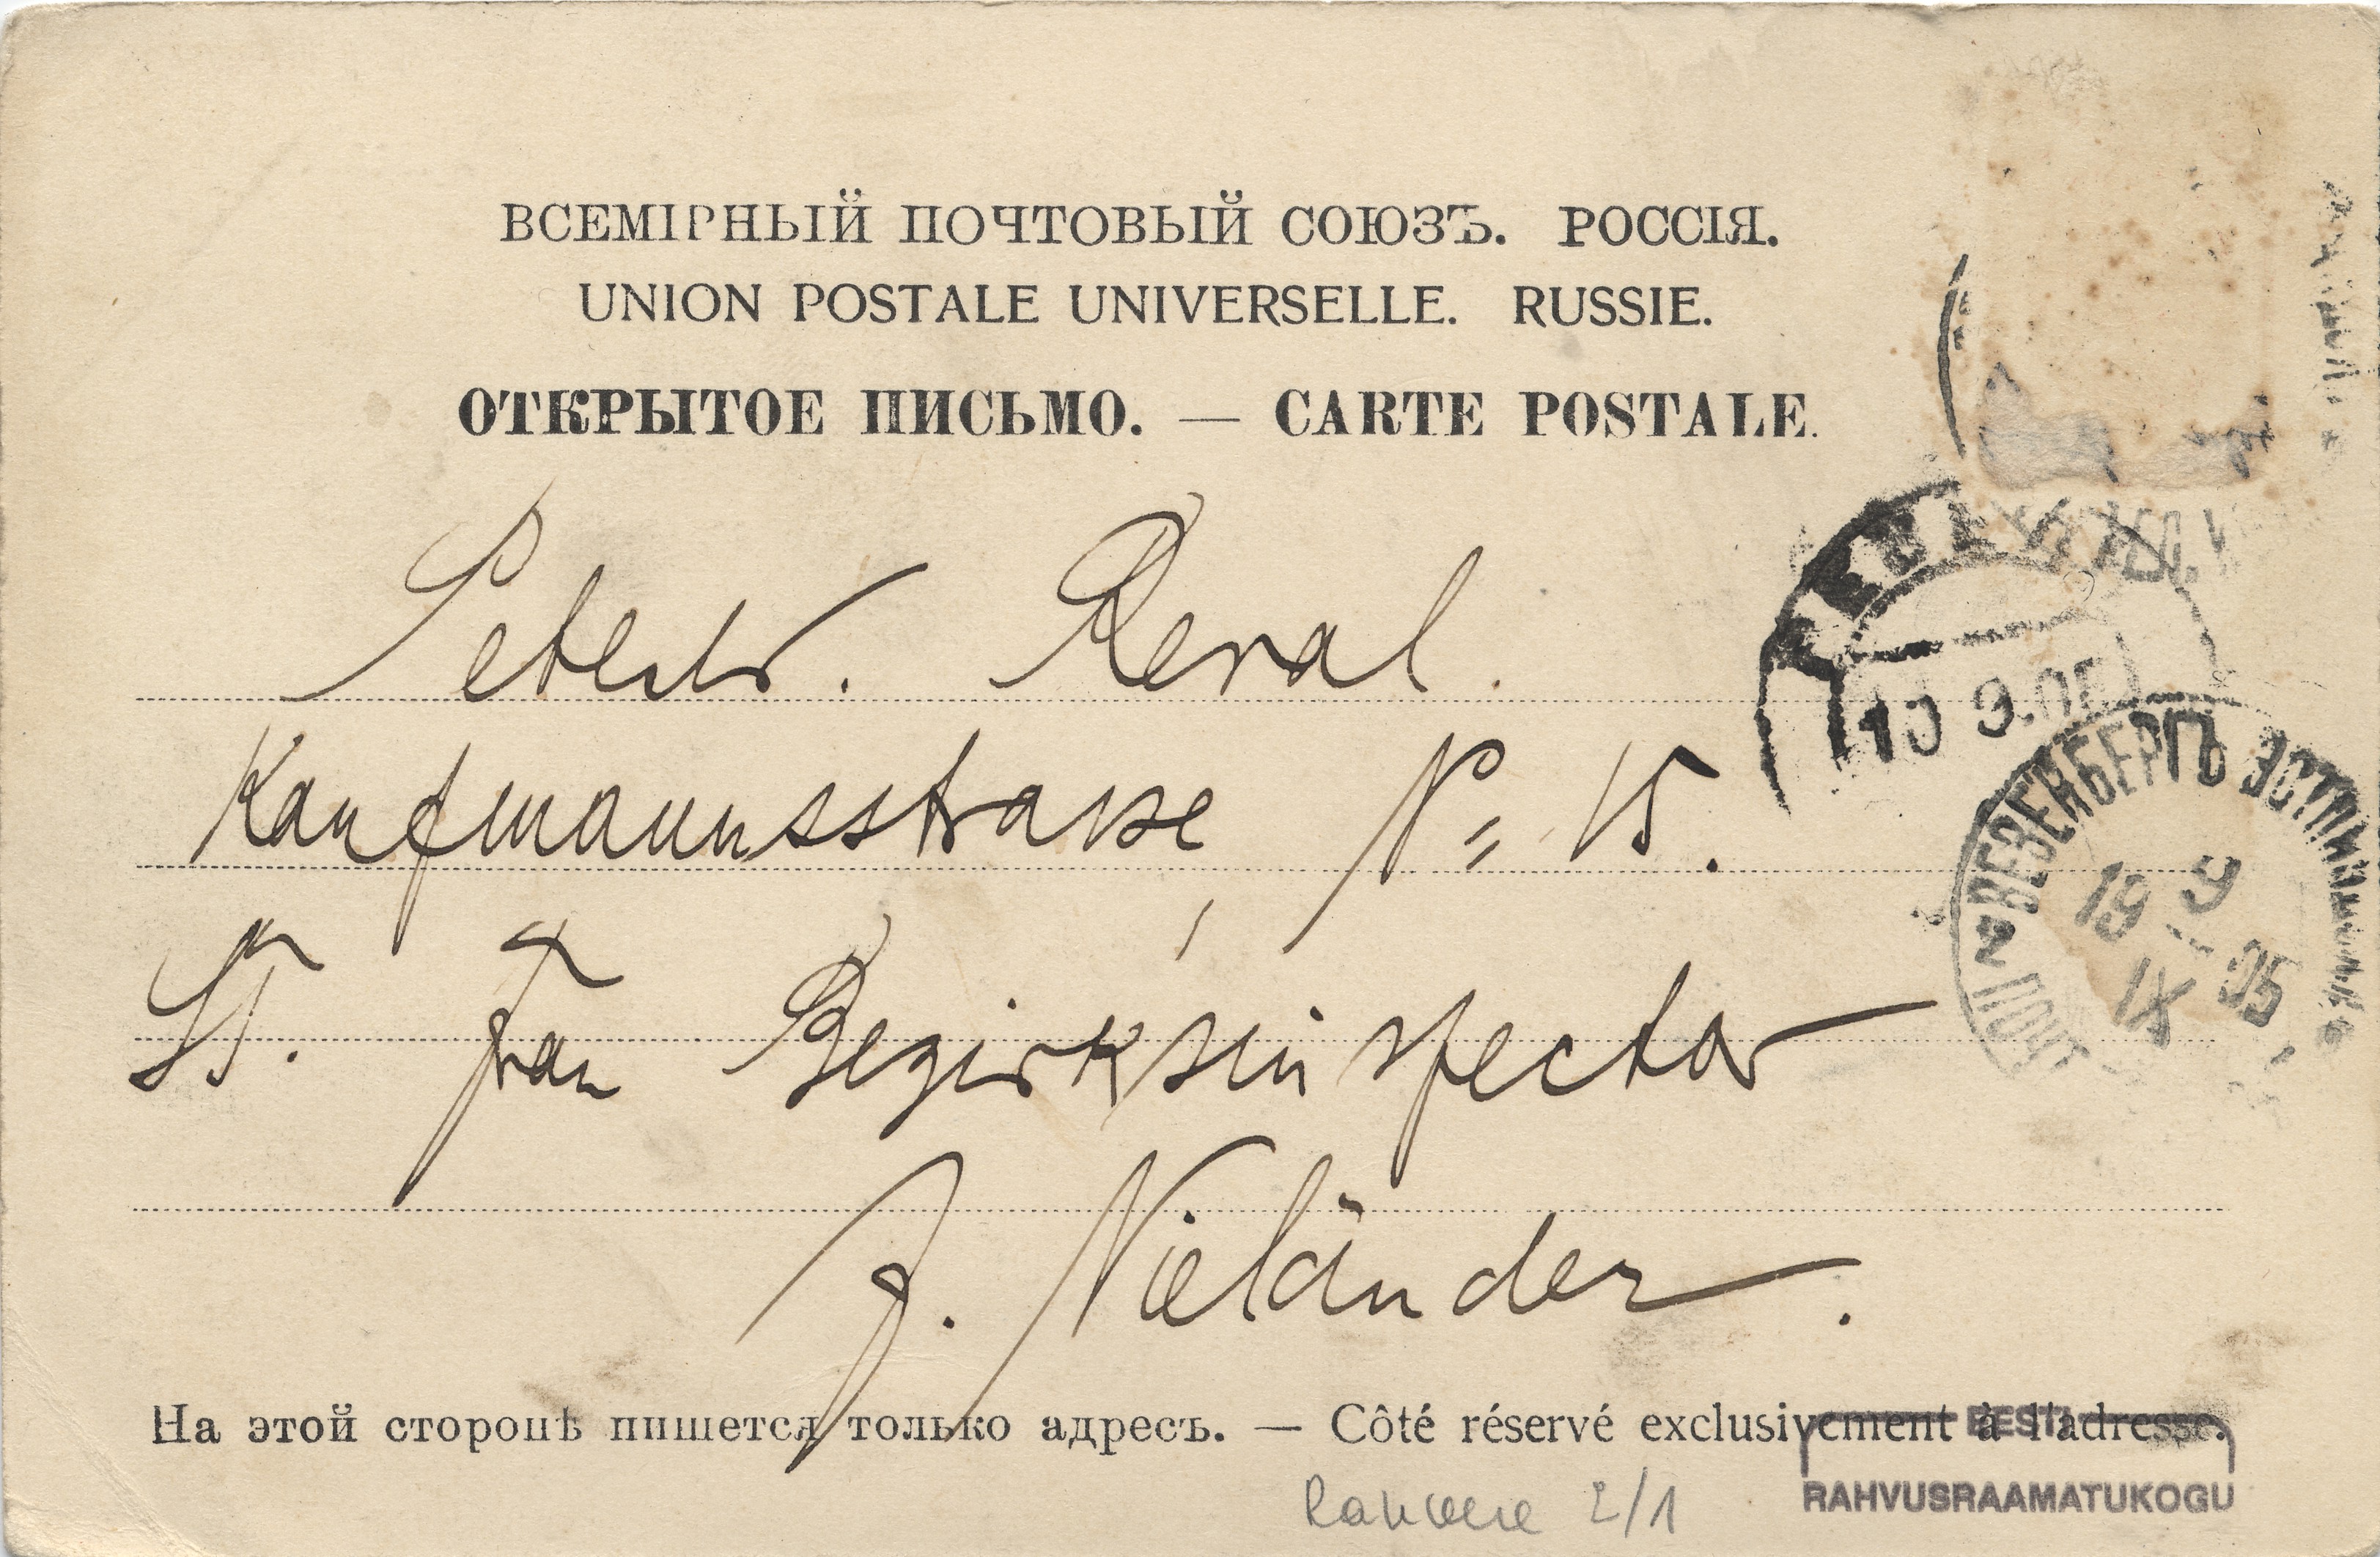 ВСЕМІРНЫЙ ПОЧТОВЫЙ СОЮЗЪ. РОССІЯ.
UNION POSTALE UNIVERSELLE. RUSSIE.
ОТКРЫТОЕ ПИСЬМО. — CARTE POSTALE.
Reval.
Kaufmannsstrasse, No 15.
Frau Bezirksinspector
J. Nieländer.
ВЕЗЕНБЕРГЪ ЭСТЛЯН
19 9
IX 05
На этой сторонѣ пишется только адресъ. — Côté réservé exclusivement à l'adresse.
EESTI
RAHVUSRAAMATUKOGU
Rakvere 2/1